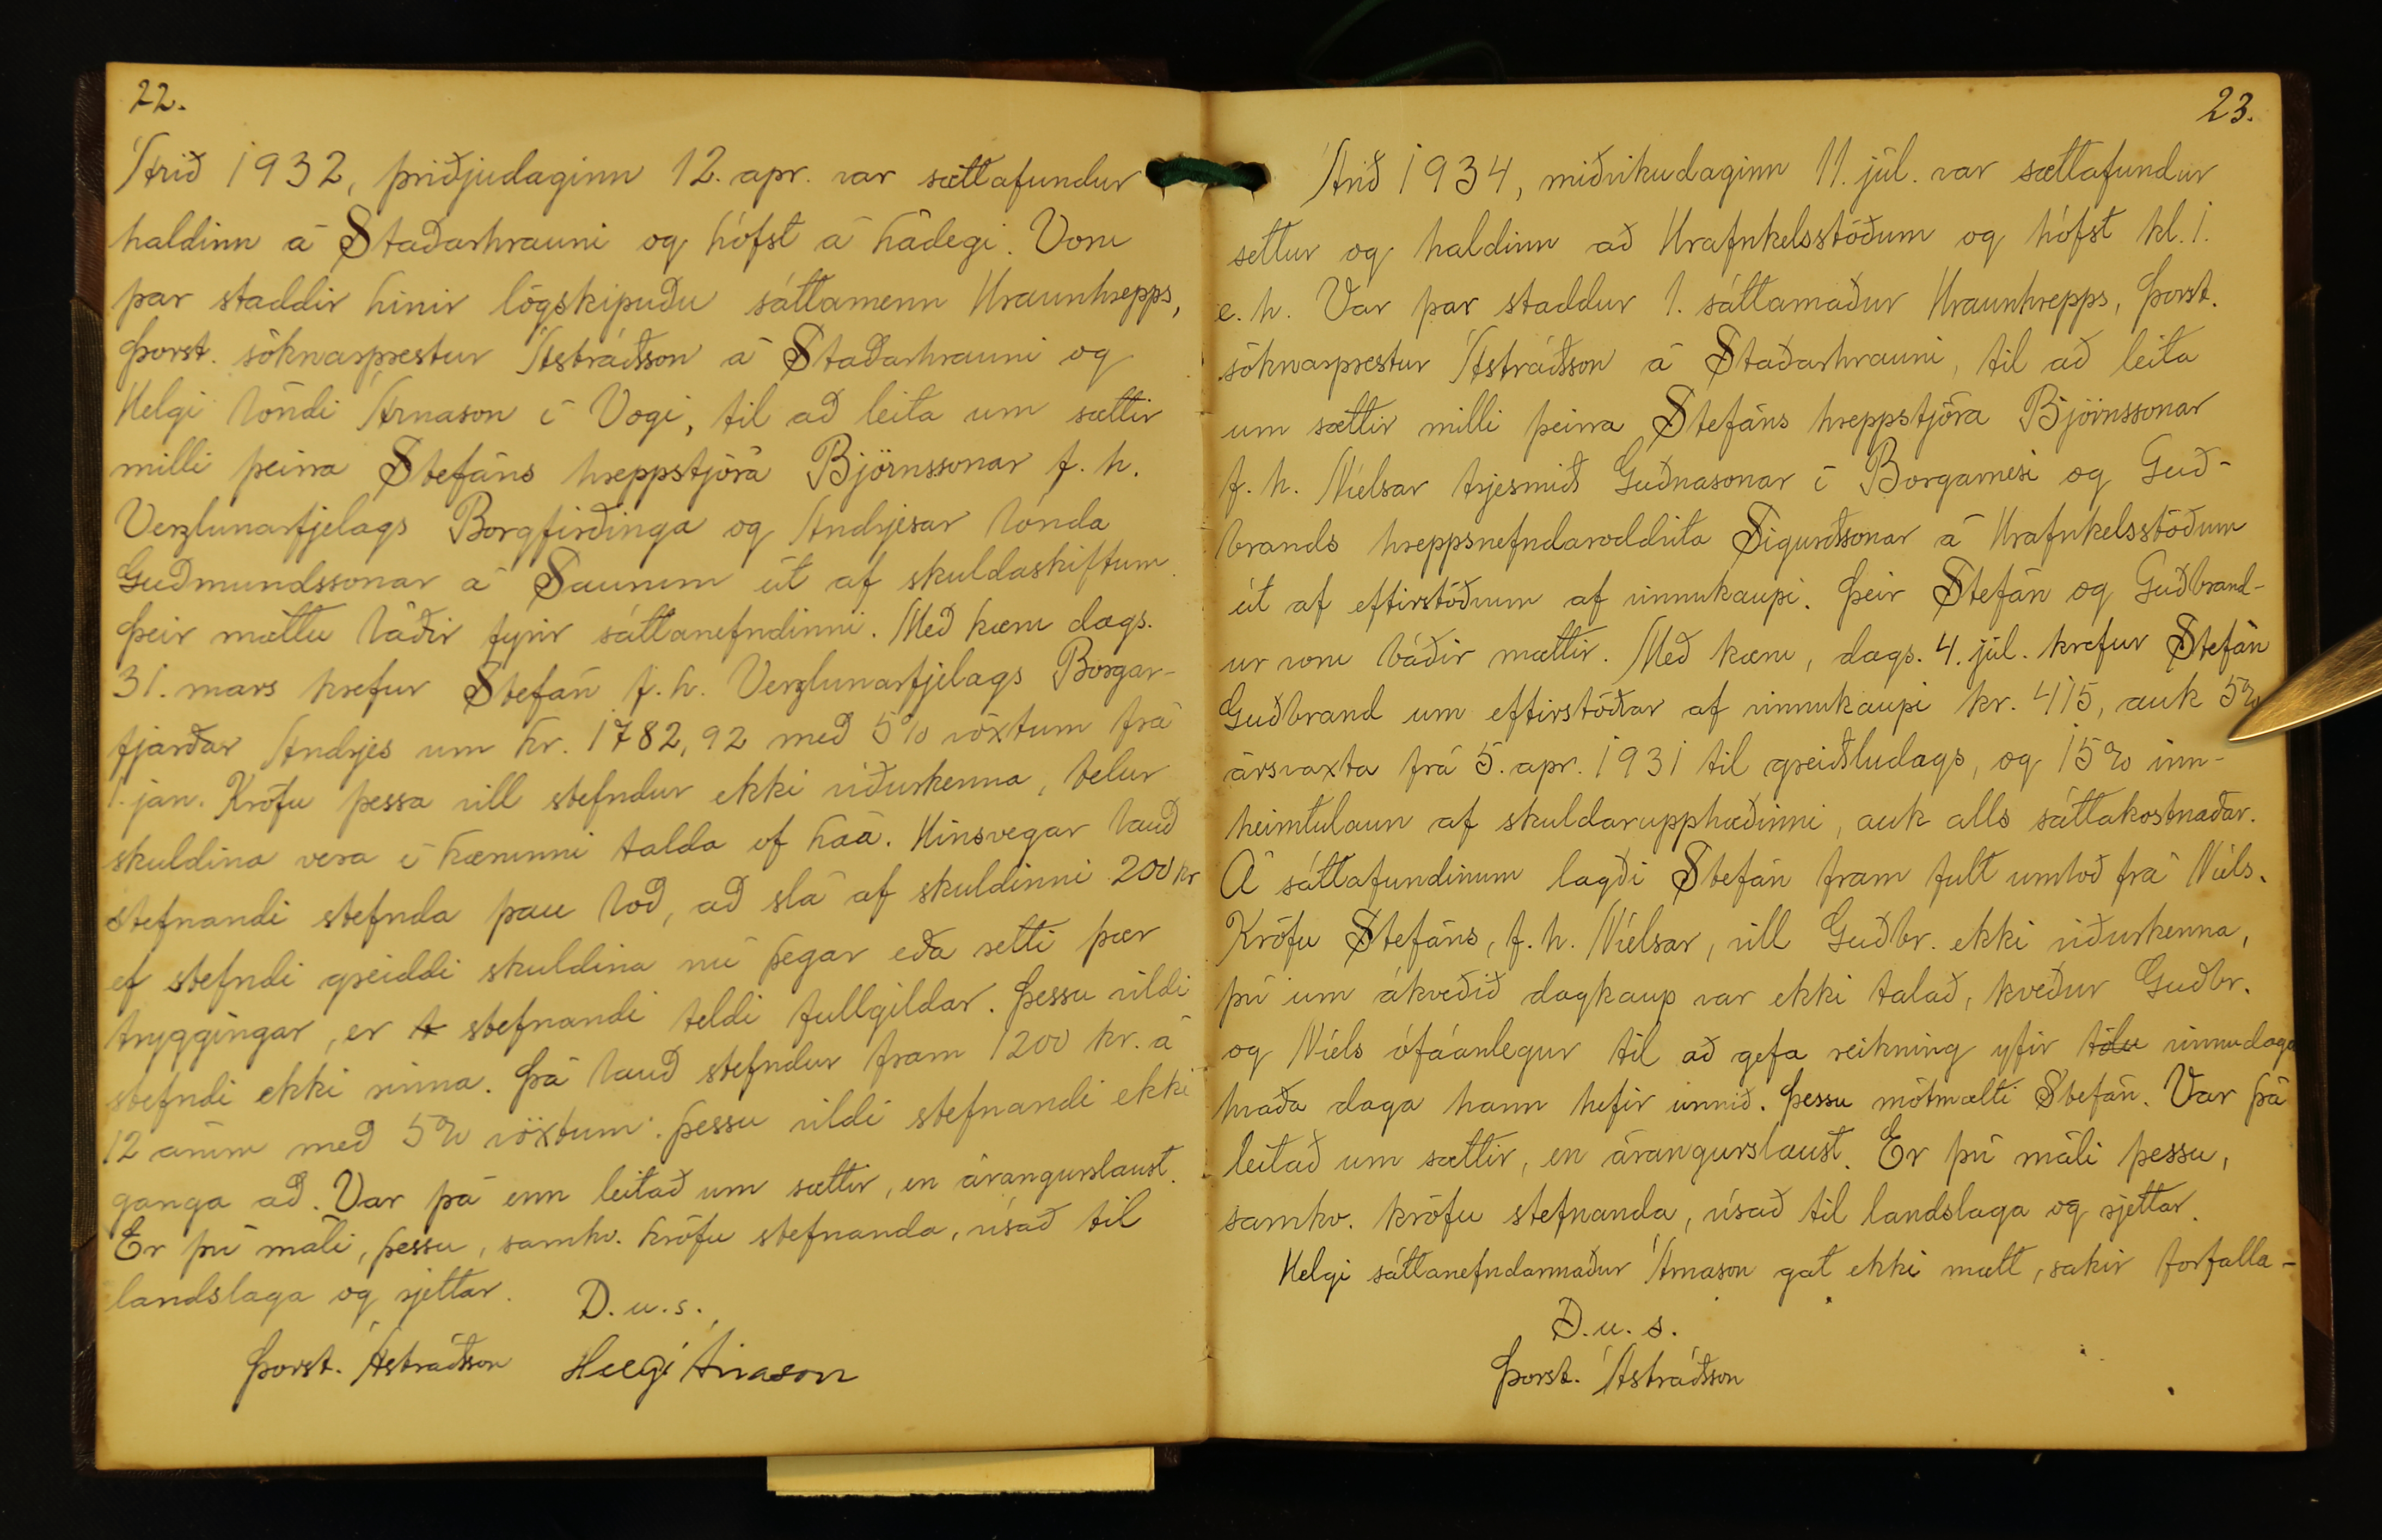 22.
Árið 1932, þriðjudaginn 12. apr. var sættafundur
haldinn á Staðarhrauni og hófst á hádegi. Voru
þar staddir hinir lögskipuðu sáttamenn Hraunhrepps,
Þorst. sóknarprestur Ástráðsson á Staðarhrauni og
Helgi bóndi Árnason í Vogi, til að leita um sættir
milli þeirra Stefáns hreppstjóra Björnssonar f. h.
Verzlunarfjelags Borgfirðinga og Andrjesar bónda
Guðmundssonar á Saurum út af skuldaskiftum.
Þeir mættu báðir fyrir sáttanefndinni. Með kæru dags.
31. mars krefur Stefán f. h. Verzlunarfjelags Borgar-
fjarðar Andrjes um kr. 1782,92 með 5% vöxtum frá
1. jan. Kröfu þessa vill stefndur ekki viðurkenna, telur
skuldina vera í kærunni talda of háa. Hinsvegar bauð
stefnandi stefnda þau boð, að slá af skuldinni 200 kr
ef stefndi greiddi skuldina nú þegar eða setti þær
tryggingar, er stefnandi teldi fullgildar. Þessu vildi
stefndi ekki sinna. Þá bauð stefndur fram 1200 kr. á
12 árum með 5% vöxtum. Þessu vildi stefnandi ekki
ganga að. Var þá enn leitað um sættir, en árangurslaust.
Er því máli, þessu, samkv. kröfu stefnanda, vísað til
landslaga og rjettar.
D. u. s.
Þorst. Ástráðsson Helgi Árnason
23.
Árið 1934, miðvikudaginn 11. júl. var sættafundur
settur og haldinn að Hrafnkelsstöðum og hófst kl. 1.
e. h. Var þar staddur 1. sáttamaður Hraunhrepps, Þorst.
sóknarprestur Ástráðsson á Staðarhrauni, til að leita
um sættir milli þeirra Stefáns hreppstjóra Björnssonar
f. h. Níelsar trjesmiðs Guðnasonar í Borgarnesi og Guð-
brands hreppsnefndaroddvita Sigurðssonar á Hrafnkelsstöðum
út af eftirstöðvum af vinnukaupi. Þeir Stefán og Guðbrand-
ur voru báðir mættir. Með kæru, dags. 4. júl. krefur Stefán
Guðbrand um eftirstöðvar af vinnukaupi kr. 415, auk 5%
ársvaxta frá 5. apr. 1931 til greiðsludags, og 15% inn-
heimtulaun af skuldarupphæðinni, auk alls sáttakostnaðar.
Á sáttafundinum lagði Stefán fram fult umboð frá Níels.
Kröfu Stefáns, f. h. Níelsar, vill Guðbr. ekki viðurkenna,
því um ákveðið dagkaup var ekki talað, kveður Guðbr.
og Níels ófáanlegur til að gefa reikning yfir tölu vinnudaga
hvaða daga hann hefir unnið. Þessu mótmælti Stefán. Var þá
leitað um sættir, en árangurslaust. Er því máli þessu,
samkv. kröfu stefnanda, vísað til landslaga og rjettar.
Helgi sáttanefndarmaður Árnason gat ekki mætt, sakir forfalla-
D. u. s.
Þorst. Ástráðsson